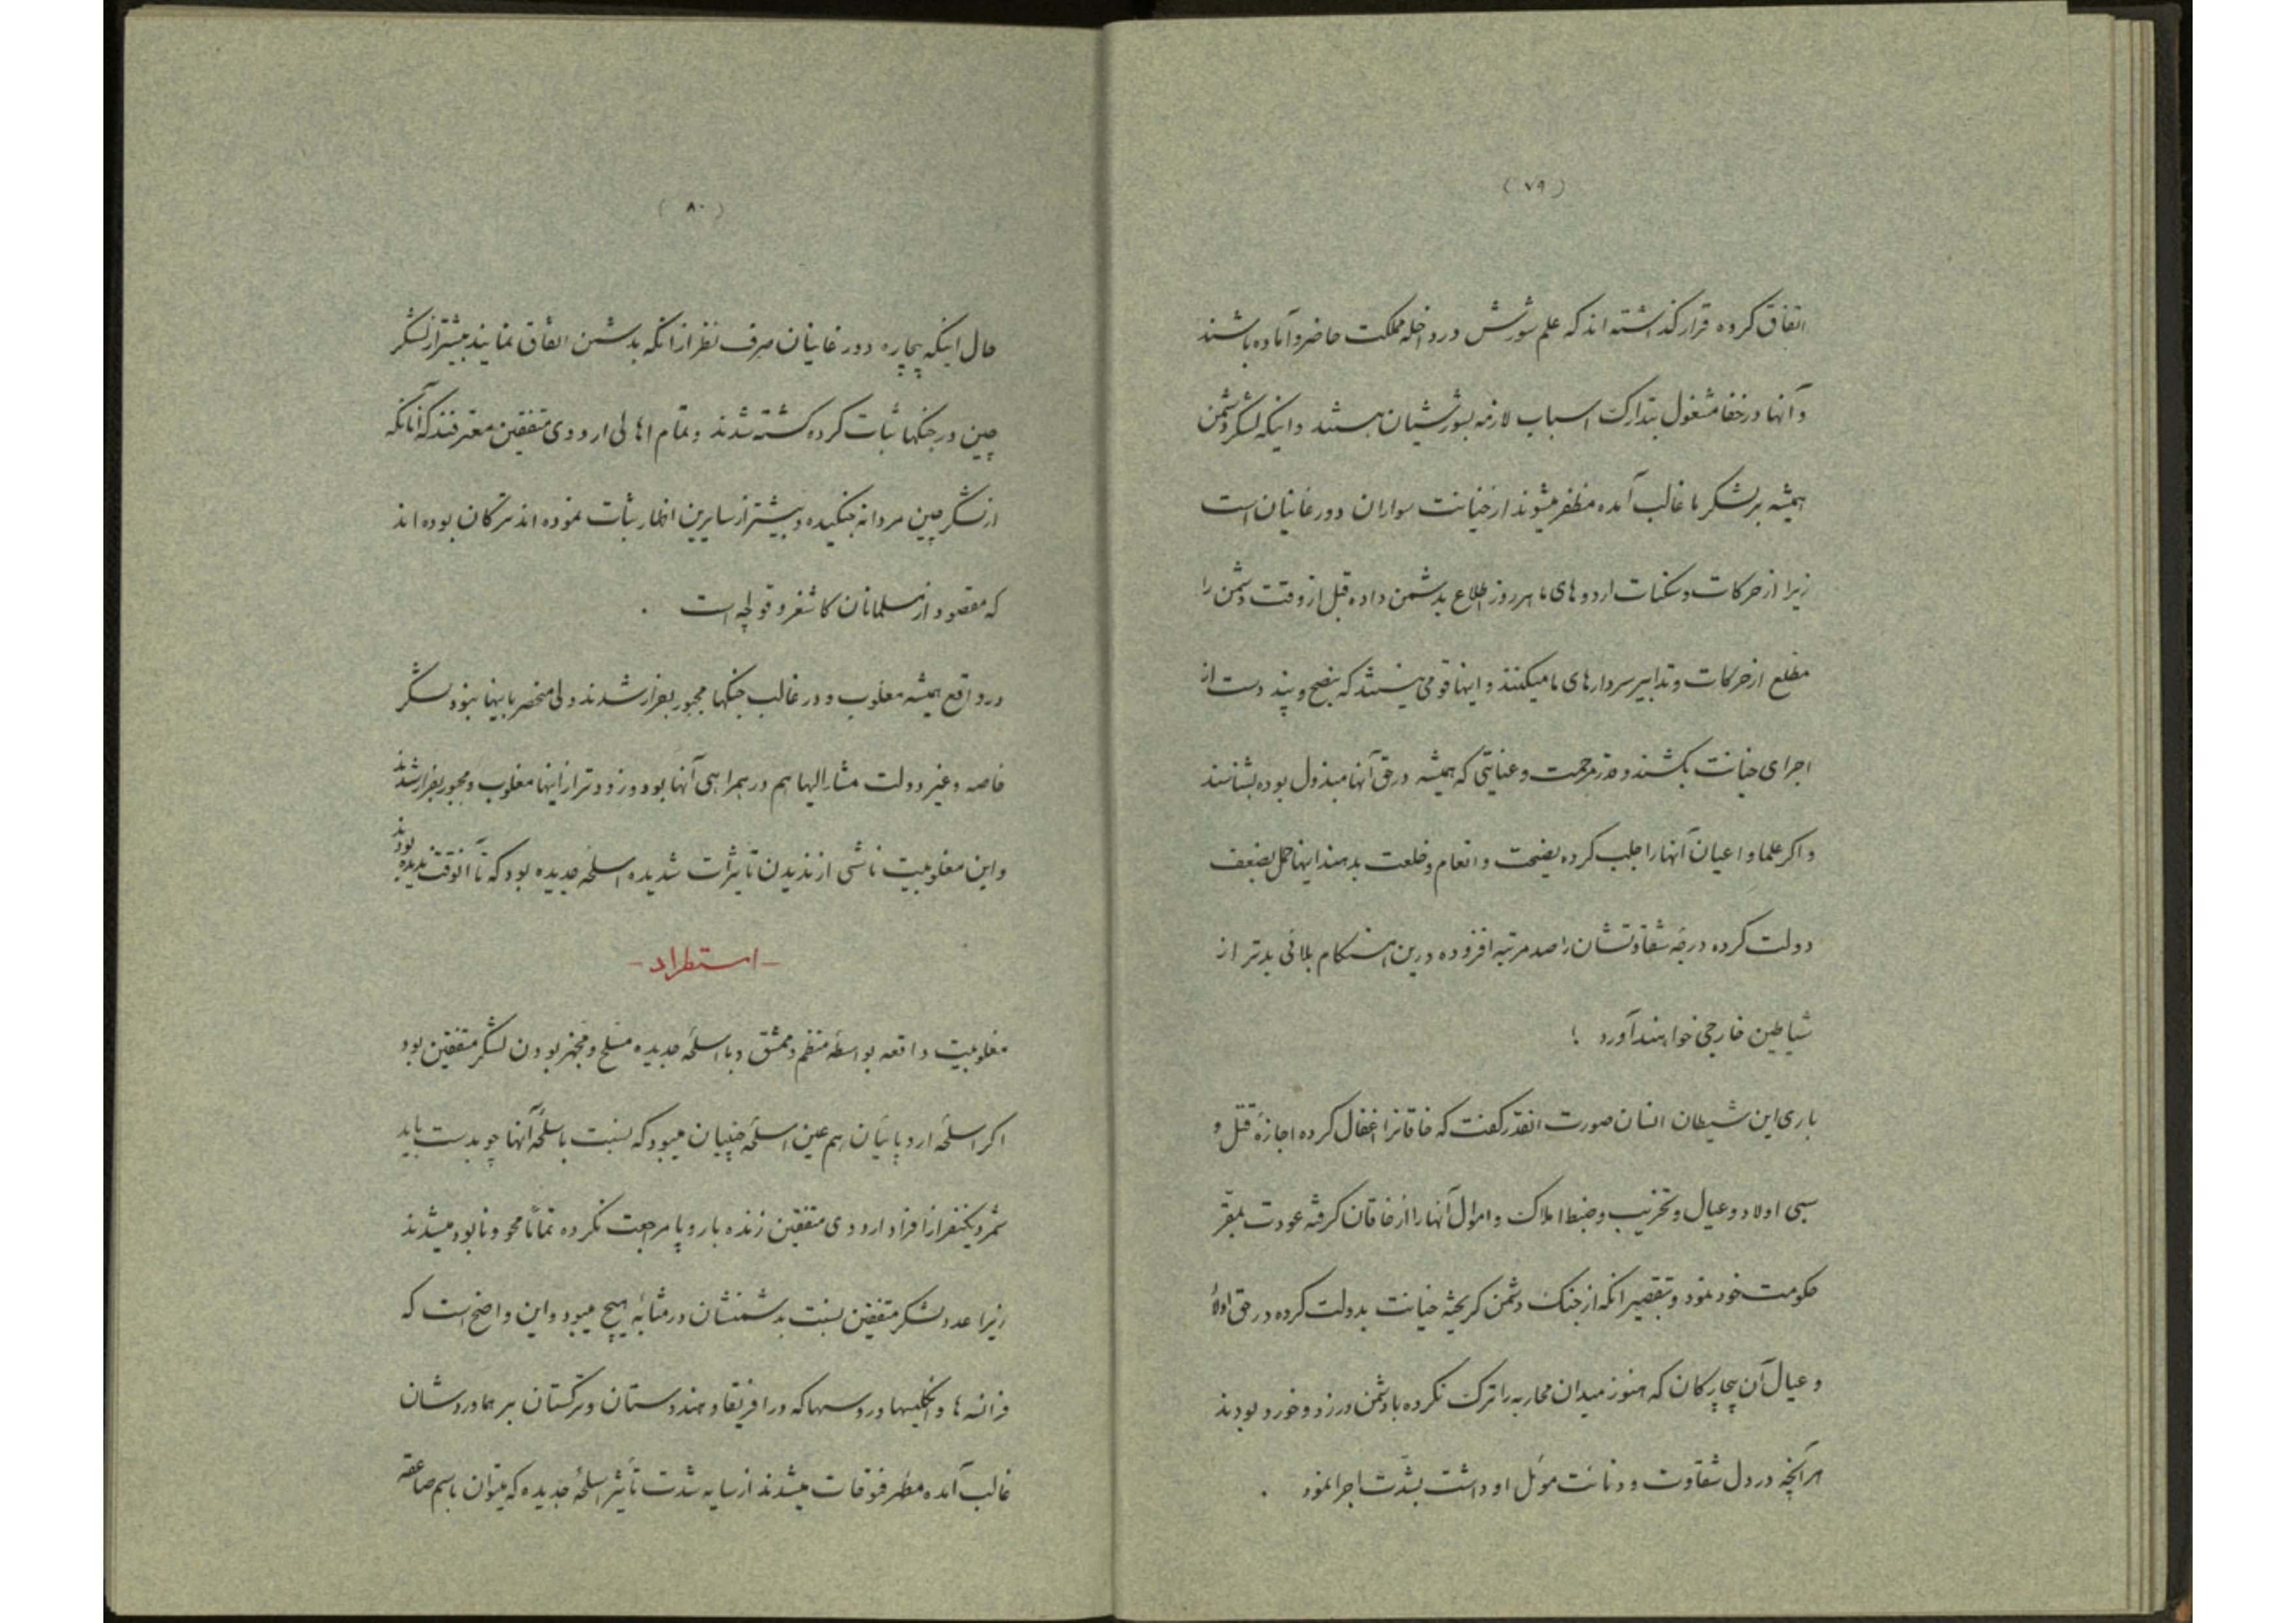 (٧٩)
اتفاق کرده قرار گذاشته اند که علم شورش در داخله مملکت حاضر و آماده باشند
و آنها در خفا مشغول بتدارک اسباب لازمه بشورشیان هستند و اینکه لشکر دشمن
همیشه بر لشکر ما غالب آمده مظفر میشوند از خیانت سواران دورغانیان است
زیرا از حرکات و سکنات اردوهای ما هر روز اطلاع بدشمن داده قبل از وقت دشمن را
مطلع از حرکات و تدابیر سردارهای ما میکنند و اینها قومی نیستند که بنصح و پند دست از
اجرای خیانت بکشند و قدر مرحمت و عنایتی که همیشه در حق آنها مبذول بوده بشناسند
و اکر علما و اعیان آنها را جلب کرده نصیحت و انعام و خلعت بدهند اینها حمل بضعف
دولت کرده درجه شقاوتشان را صد مرتبه افزوده درین هنکام بلائی بدتر از
شیاطین خارجی خواهند آورد !
باری این شیطان انسان صورت انقدر کفت که خاقانرا اغفال کرده اجازهٔ قتل و
سبی اولاد و عیال و تخریب و ضبط املاک و اموال آنها را از خاقان کرفته عودت بمقر
حکومت خود نمود و بتقصیر انکه از جنک دشمن کریخته خیانت بدولت کرده در حق اولاد
و عیال آن بیچارکان که هنوز میدان محاربه را ترک نکرده با دشمن در زد و خورد بودند
هر آنچه در دل شقاوت و دنائت موئل او داشت بشدّت اجرا نمود .
(٨٠)
حال اینکه بیچاره دورغانیان صرف نظر از انکه بدشمن اتفاق نمایند بیشتر از لشکر
چین در جنکها ثبات کرده کشته شدند و تمام اهالی اردوی متفقین معترفند که آنانکه
از لشکر چین مردانه جنکیده و بیشتر از سایرین اظهار ثبات نموده اند ترکان بوده اند
که مقصود از مسلمانان کاشغر و قولجه است .
در واقع همیشه مغلوب و در غالب جنکها مجبور بفرار شدند ولی منحصر باینها نبود لشکر
خاصه و غیر دولت مشار الیها هم در همراهی آنها بود و زودتر از اینها مغلوب و مجبور بفرار شدند
و این مغلوبیت ناشی از ندیدن تاثیرات شدیده اسلحه جدیده بود که تا آنوقت ندیده بودند
-استطراد-
مغلوبیت واقعه بواسطهٔ منظم و ممشق و با اسلحهٔ جدیده مسلح و مجهز بودن لشکر متفقین بود
اکر اسلحهٔ اروپائیان هم عین اسلحهٔ چینیان میبود که نسبت باسلحهٔ آنها چوبدست باید
شمرد یکنفر از افراد اردوی متفقین زنده باروپا مرجعت نکرده تماماً محو و نابود میشدند
زیرا عدد لشکر متفقین نسبت بدشمنشان در مثابهٔ هیچ میبود و این واضح است که
فرانسه ها و انکلیسها و روسها که در افریقا و هندوستان و ترکستان بر هماوردشان
غالب آمده مظهر فتوحات میشدند از سایه شدت تأثیر اسلحهٔ جدیده که میتوان باسم صاعقه